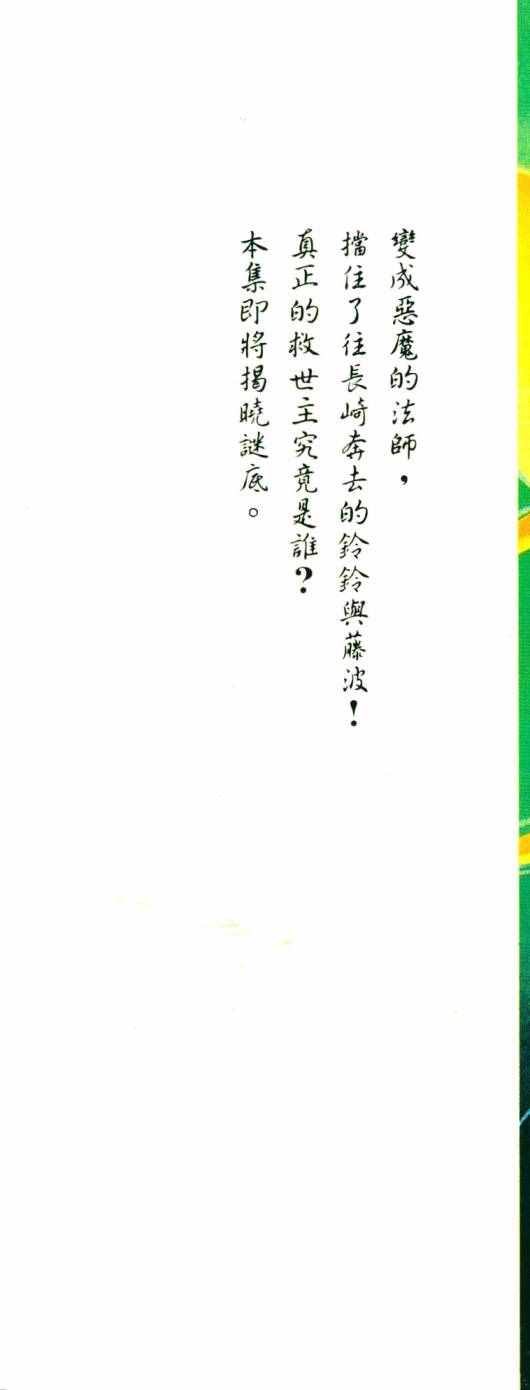 變成惡魔的法師，
擋住了往長崎奔去的鈴鈴與藤波！
真正的救世主究竟是誰？
本集即將揭曉謎底。